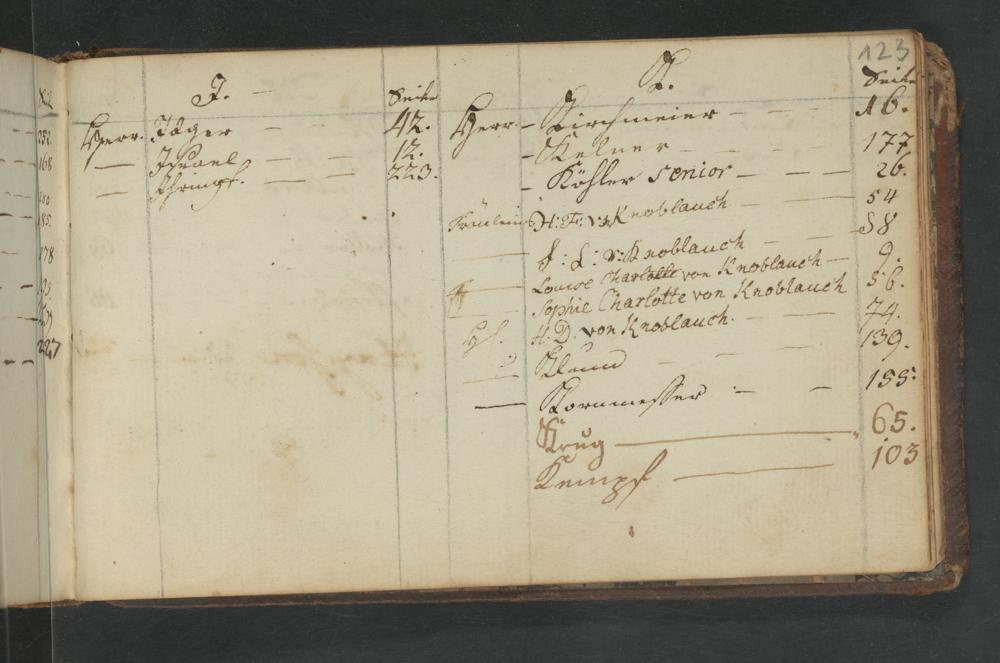 123
J. -
Seite
Herr. Jäger - 42.
— Israel - - - 12.
— Ihrimpf. - - 223.
K.
Seite
Herr - Kirchmeier - - - 16.
- Kelner - - - - 177
- Köhler senior - - - 26.
Fräulein H: F: v: Knoblauch - - - 54
— J: L: v: Knoblauch - - 58
— Louise Charlotte von Knoblauch - 9.
— Sophie Charlotte von Knoblauch 56.
H. D. von Knoblauch. - - - 74.
— - - - 139.
— Kornmesser - - 155.
Krug — 65.
Kempf — 103
252.
168
180
185.
178
227